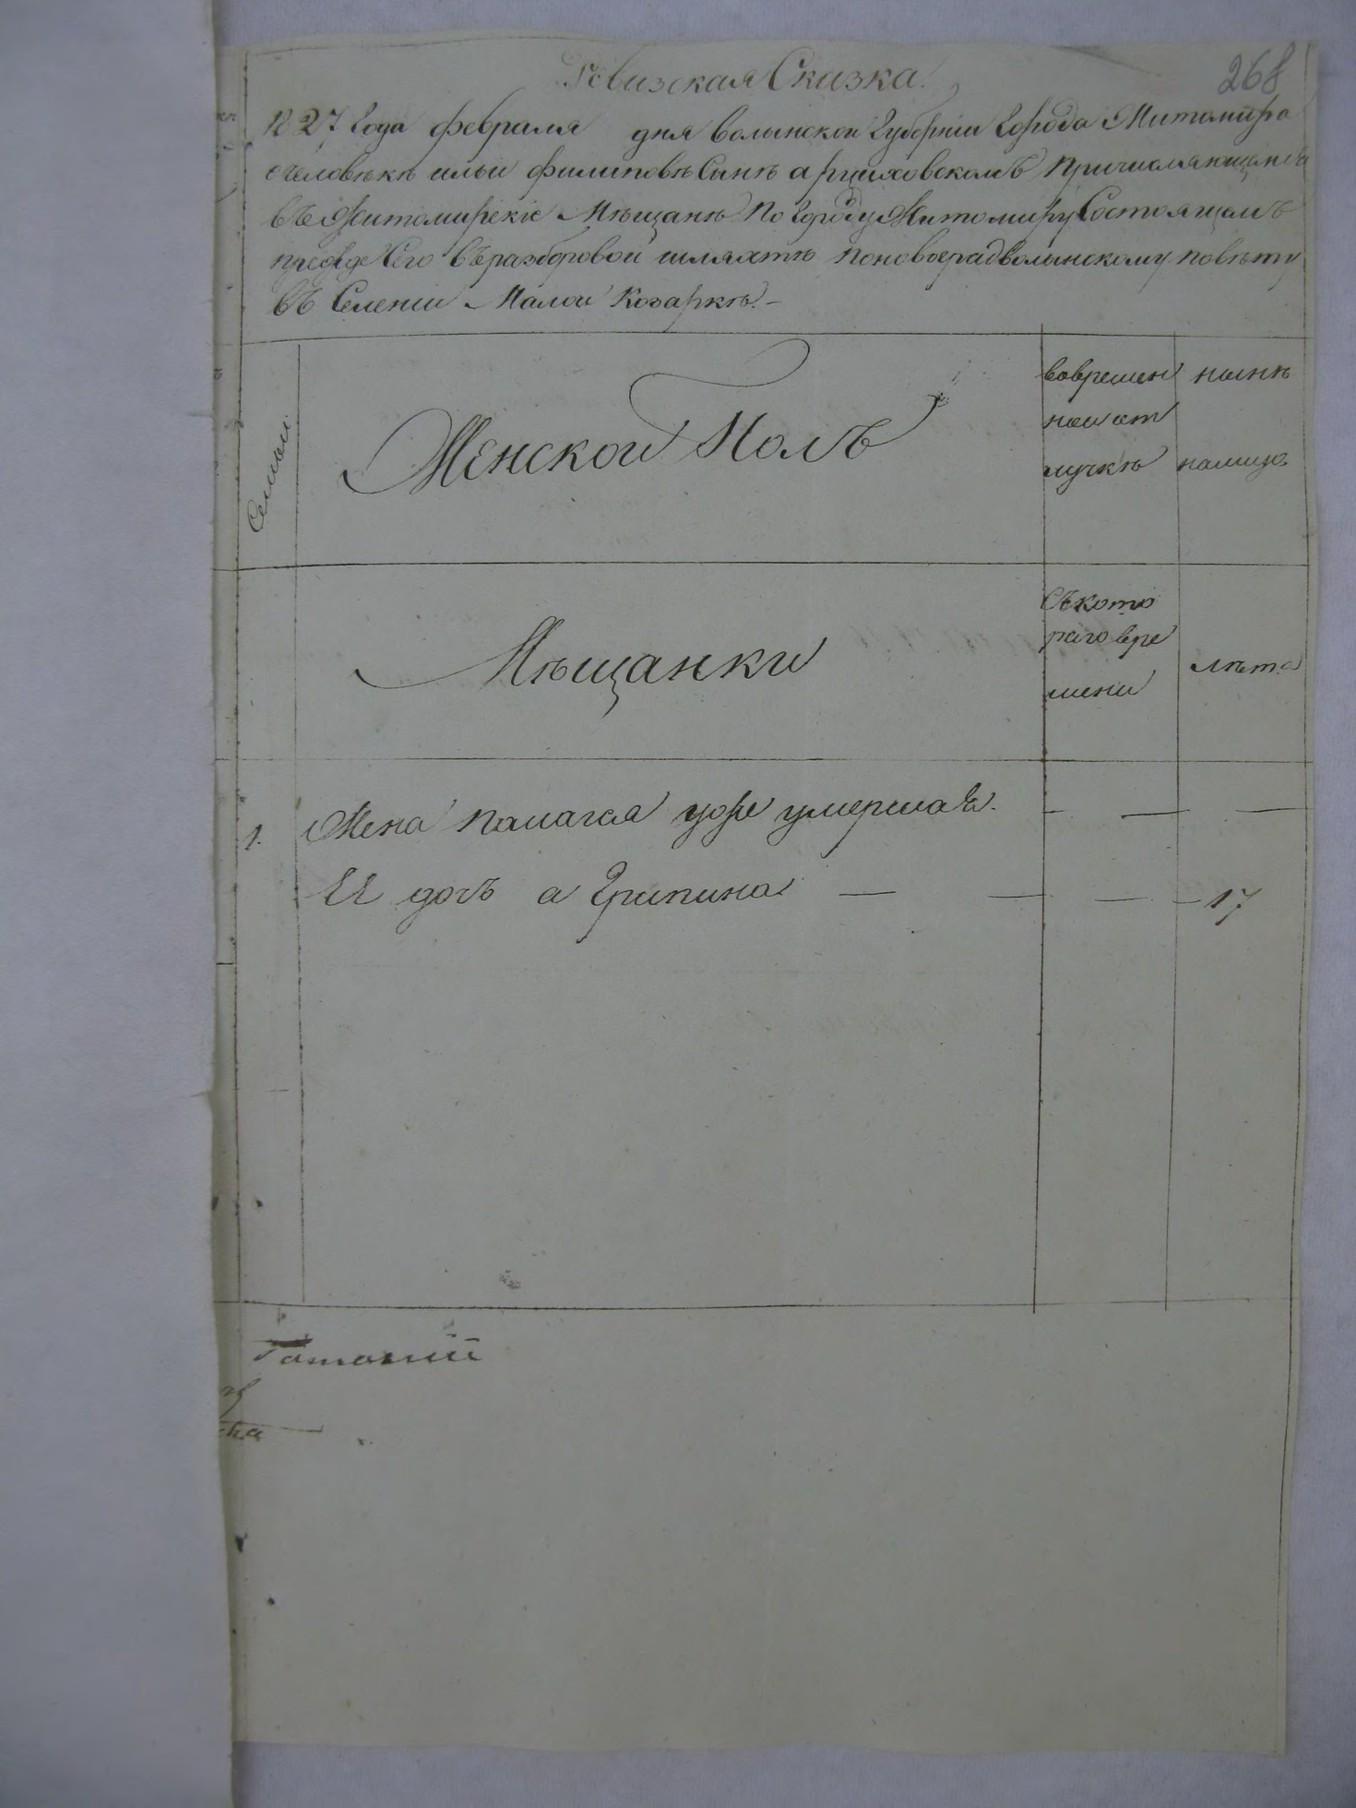 Ревизская Сказка.
268
1827 года февраля дня волынской губерніи города Житомира
о человѣкѣ ильи филиповѣ Сынѣ арцишовскомъ причисляющимся
въ Житомирскіе Мѣщанѣ по городу Житомиру Состоящемъ
прежде Сего въ разборовой шляхтѣ по новоградволынскому повѣту
въ Селеніи Малой Козаркѣ.-
Семьи
Женской Полъ
вовремен ной от лучкѣ
нынѣ налицо
Мѣщанки
Съ кото раго вре мени
лѣта
1. Жена Палагея уже умершая. — — —
Ей дочъ агрипина — — — — 17